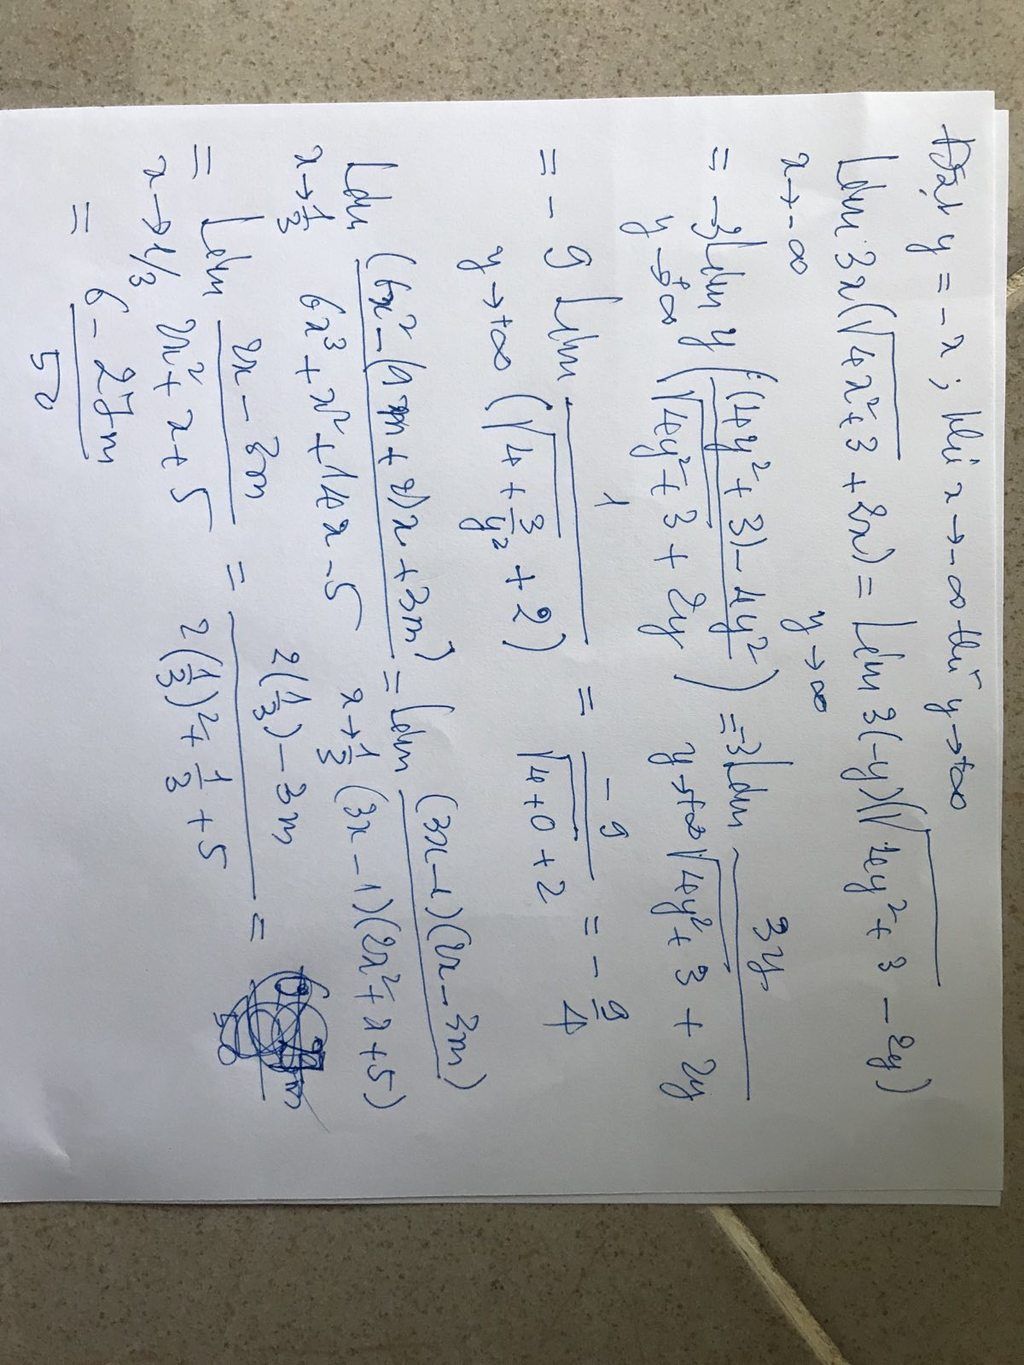 Đặt y = -x ; khi x → -∞ thì y → +∞
Lim 3x(√(4x²+3) + 2x) = Lim 3(-y)(√(4y²+3) - 2y)
x → -∞ y → ∞
= -3 Lim y ( ((4y²+3) - 4y²) / (√(4y²+3) + 2y) ) = -3 Lim 3y / (√(4y²+3) + 2y)
y → +∞ y → +∞
= -9 Lim 1 / (√(4 + 3/y²) + 2) = -9 / (√(4+0) + 2) = -9/4
y → +∞
Lim (6x² - (9m + 2)x + 3m) / (6x³ + x² + 14x - 5) = Lim (3x - 1)(2x - 3m) / ((3x - 1)(2x² + x + 5))
x → 1/3 x → 1/3
= Lim (2x - 3m) / (2x² + x + 5) = (2(1/3) - 3m) / (2(1/3)² + 1/3 + 5) =
x → 1/3
= (6 - 27m) / 50